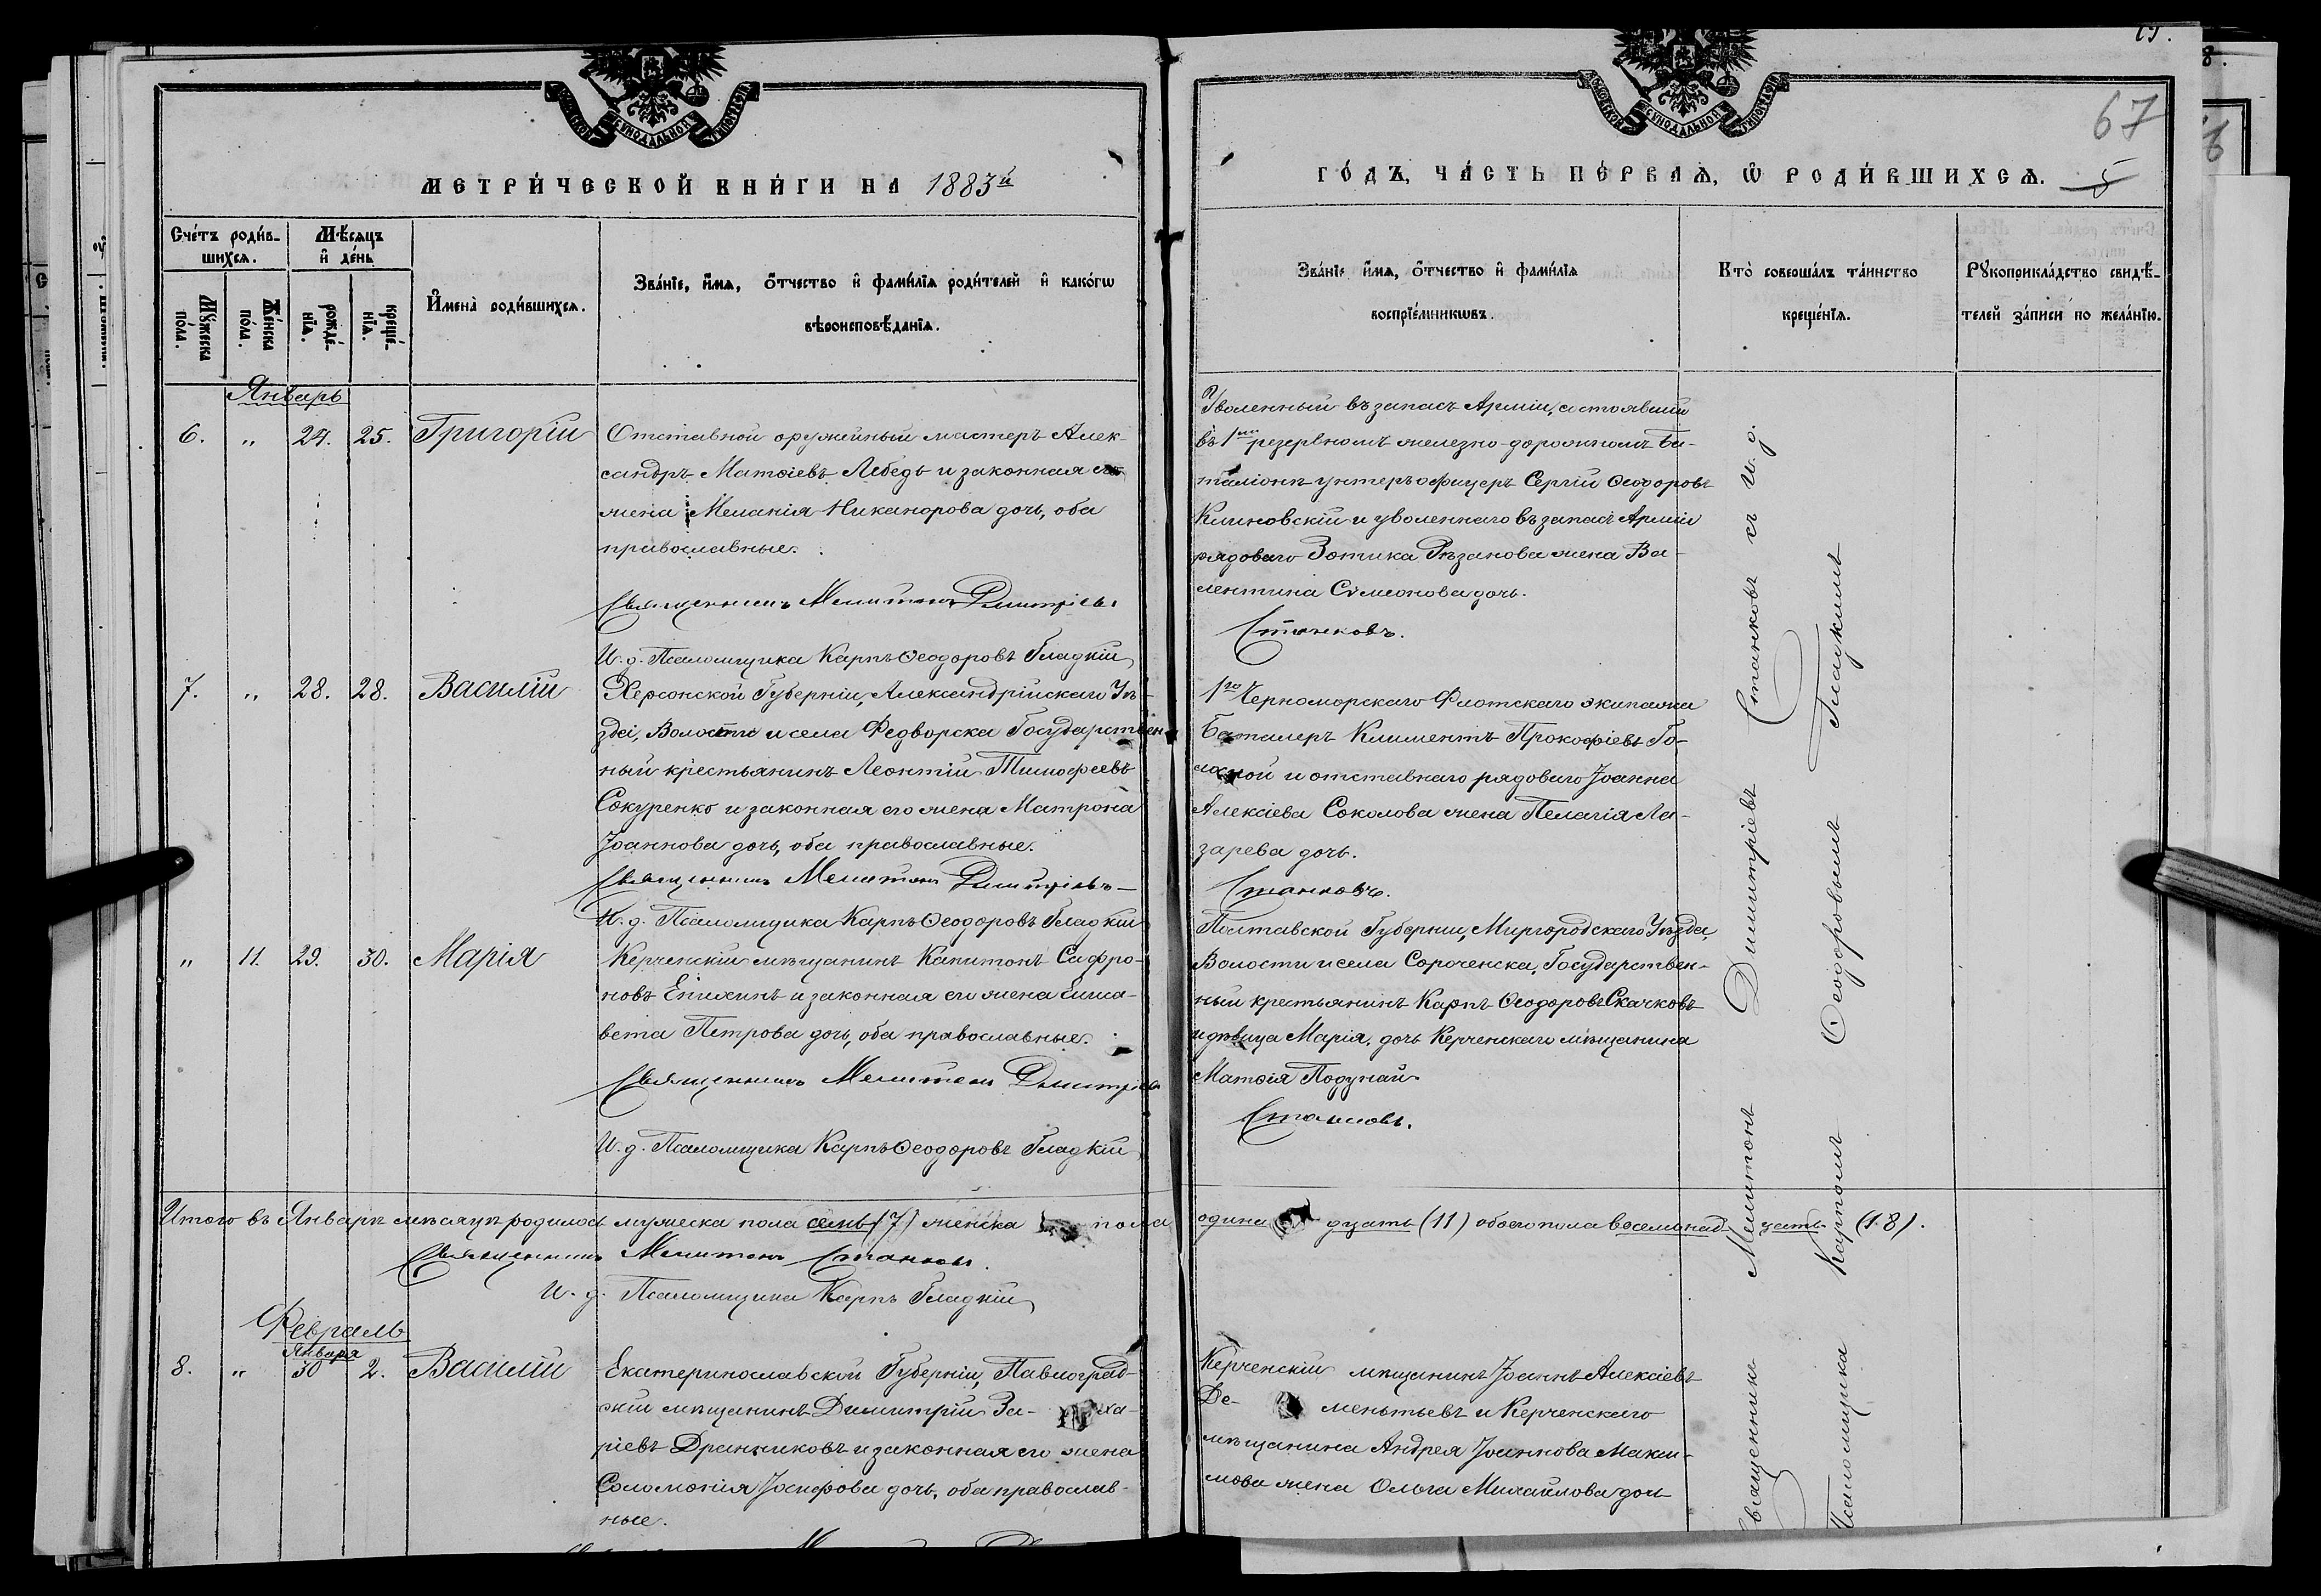 67
МЕТРИ́ЧЕСКОЙ КНИ́ГИ НА 1883й
ГО́ДЪ, ЧА́СТЬ ПЕ́РВАѦ, Ѡ РОДИ́ВШИХСѦ. 5
Сче́тъ роди́в-
шихсѧ.
Мѣ́сѧцъ
и де́нь
Мꙋ́жеска по́ла.
Же́нска по́ла.
рожде́-
нїѧ.
креще́-
нїѧ.
Имена̀ роди́вшихсѧ.
Зва́нїе, и́мѧ, о́тчество и фами́лїѧ роди́телей и како́гѡ
вѣроисповѣ́данїѧ.
Зва́нїе и́мѧ, о́тчество и фами́лїѧ
воспрїе́мникѡвъ.
Кто̀ соверша́лъ та́инство
креще́нїѧ.
Рꙋкоприкла́дство свидѣ́-
телей за́писи по жела́нїю.
Январь
6. „ 24. 25. Григорій
Отставной оружейный мастеръ Алек-
сандръ Матѳіевъ Лебедь и законная его
жена Меланія Никанорова дочь, оба
православные.
Священникъ Мелитонъ Дмитріевъ
И. д. Псаломщика Карпъ Ѳеодоровъ Гладкій
Уволенный въ запасъ Арміи, состоявшій
въ 1мъ резервномъ желѣзно-дорожномъ Ба-
таліонѣ унтеръ офицеръ Сергій Ѳеодоровъ
Климовскій и уволеннаго въ запасъ Арміи
рядоваго Зотика Рѣзанова жена Ва-
лентина Сѵмеонова дочь.
Станковъ.
7. „ 28. 28. Василій
Херсонской Губерніи, Александрійскаго Уѣ-
зда, Волости и села Федворска Государствен-
ный крестьянинъ Леонтій Тимоѳеевъ
Сокуренко и законная его жена Матрона
Іоаннова дочь, оба православные.
Священникъ Мелитонъ Дмитріевъ
И. д. Псаломщика Карпъ Ѳеодоровъ Гладкій
1го Черноморскаго Флотскаго экипажа
Баталеръ Климентъ Прокофіевъ Го-
и отставнаго рядоваго Іоанна
Алексіева Соколова жена Пелагія Ла-
зарева дочь.
Станковъ.
„ 11. 29. 30. Марія
Керченскій мѣщанинъ Капитонъ Сафро-
новъ Епихинъ и законная его жена Елиса-
вета Петрова дочь, оба православные.
Священникъ Мелитонъ Дмитріевъ
И. д. Псаломщика Карпъ Ѳеодоровъ Гладкій
Полтавской Губерніи, Миргородскаго Уѣзда,
Волости и села Сороченска, Государствен-
ный крестьянинъ Карпъ Ѳеодоровъ Скачковъ
и дѣвица Марія, дочь Керченскаго мѣщанина
Матѳія Подунай.
Станковъ.
Итого въ Январѣ мѣсяцѣ родилось мужеска пола семь (7) женска пола одина дцать (11) обоего пола восемнад цать (18).
Священникъ Мелитонъ Станковъ.
И. д. Псаломщика Карпъ Гладкій
Февраль
Января
8. „ 30 2. Василій
Екатеринославской Губерніи, Павлоград-
скій мѣщанинъ Димитрій За- ха-
ріевъ Дранниковъ и законная его жена
Соломонія Іосифова дочь, оба православ-
ные.
Керченскій мѣщанинъ Іоаннъ Алексіевъ
Де- ментьевъ и Керченскаго
мѣщанина Андрея Іоаннова Макси-
мова жена Ольга Михайлова дочь
Священникъ Мелитонъ Димитріевъ Станковъ съ и. д.
Псаломщика Карпомъ Ѳеодоровымъ Гладкимъ